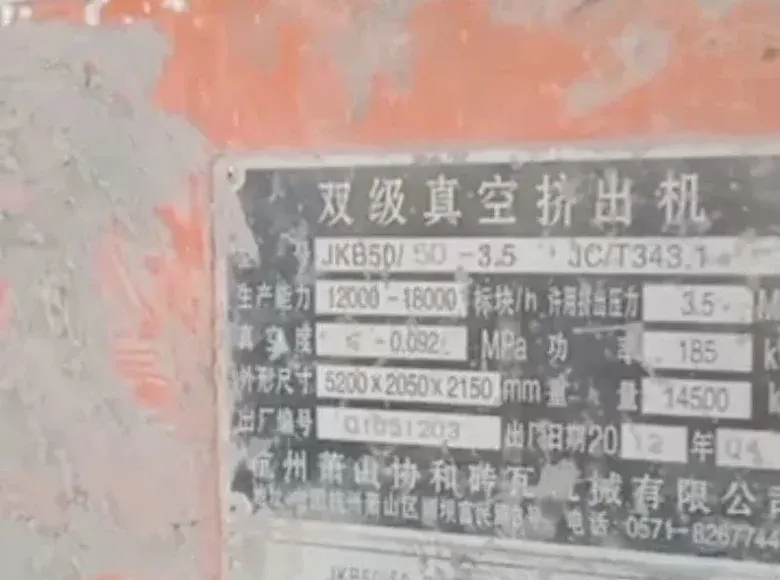 双级真空挤出机
JKB50/50-3.5 JC/T343.1
生产能力 12000-18000 标块/h 许用挤出压力 3.5 M
真空度 ≤-0.092 MPa 功率 185 k
外形尺寸 5200×2050×2150 mm 重量 14500 k
出厂编号 出厂日期 2012 年 04
杭州萧山协和砖瓦机械有限公司
杭州萧山区 号 电话:0571-8267744
JKB50/50